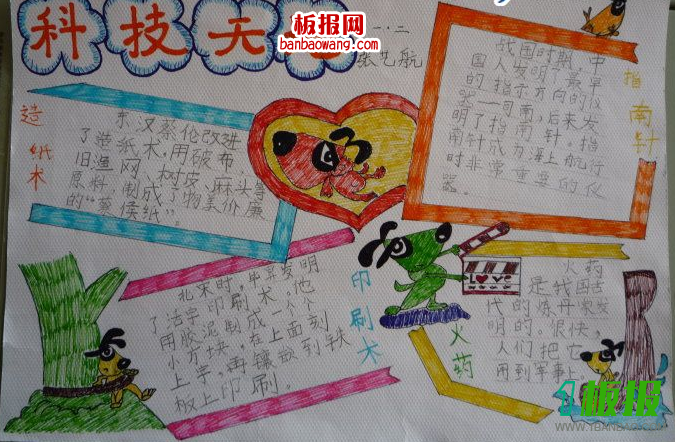 科技天
板报网
banbaowang.com
一.二
张艺航
造纸术
东汉蔡伦改进
了造纸术,用破布、
旧渔网、树皮、麻头等
原料,制成了物美价廉
的“蔡侯纸”。
战国时期,中
国人发明了最早
的指示方向的仪
器——司南,后来发
明了指南针。指
南针成为海上航行
时非常重要的仪
器。
指南针
印刷术
北宋时,毕昇发明
了活字印刷术。他
用胶泥制成一个个
小方块,在上面刻
上字,再镶嵌到铁
板上印刷。
火药
火药
是我国古
代的炼丹家发
明的。很快,
人们把它
用到军事上。
板报
WWW.1BANBAO.COM